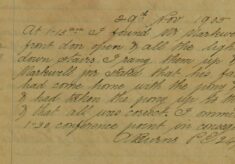 29th Nov 1905
At 1-15 am I found Mr Markwell
front door open & all the lights
down stairs. I rang them up
Markwell jnr stated that his
had come home with the pony
& had taken the pony up to the
& that all was correct. I
1-30 conference point on
P.C. 24